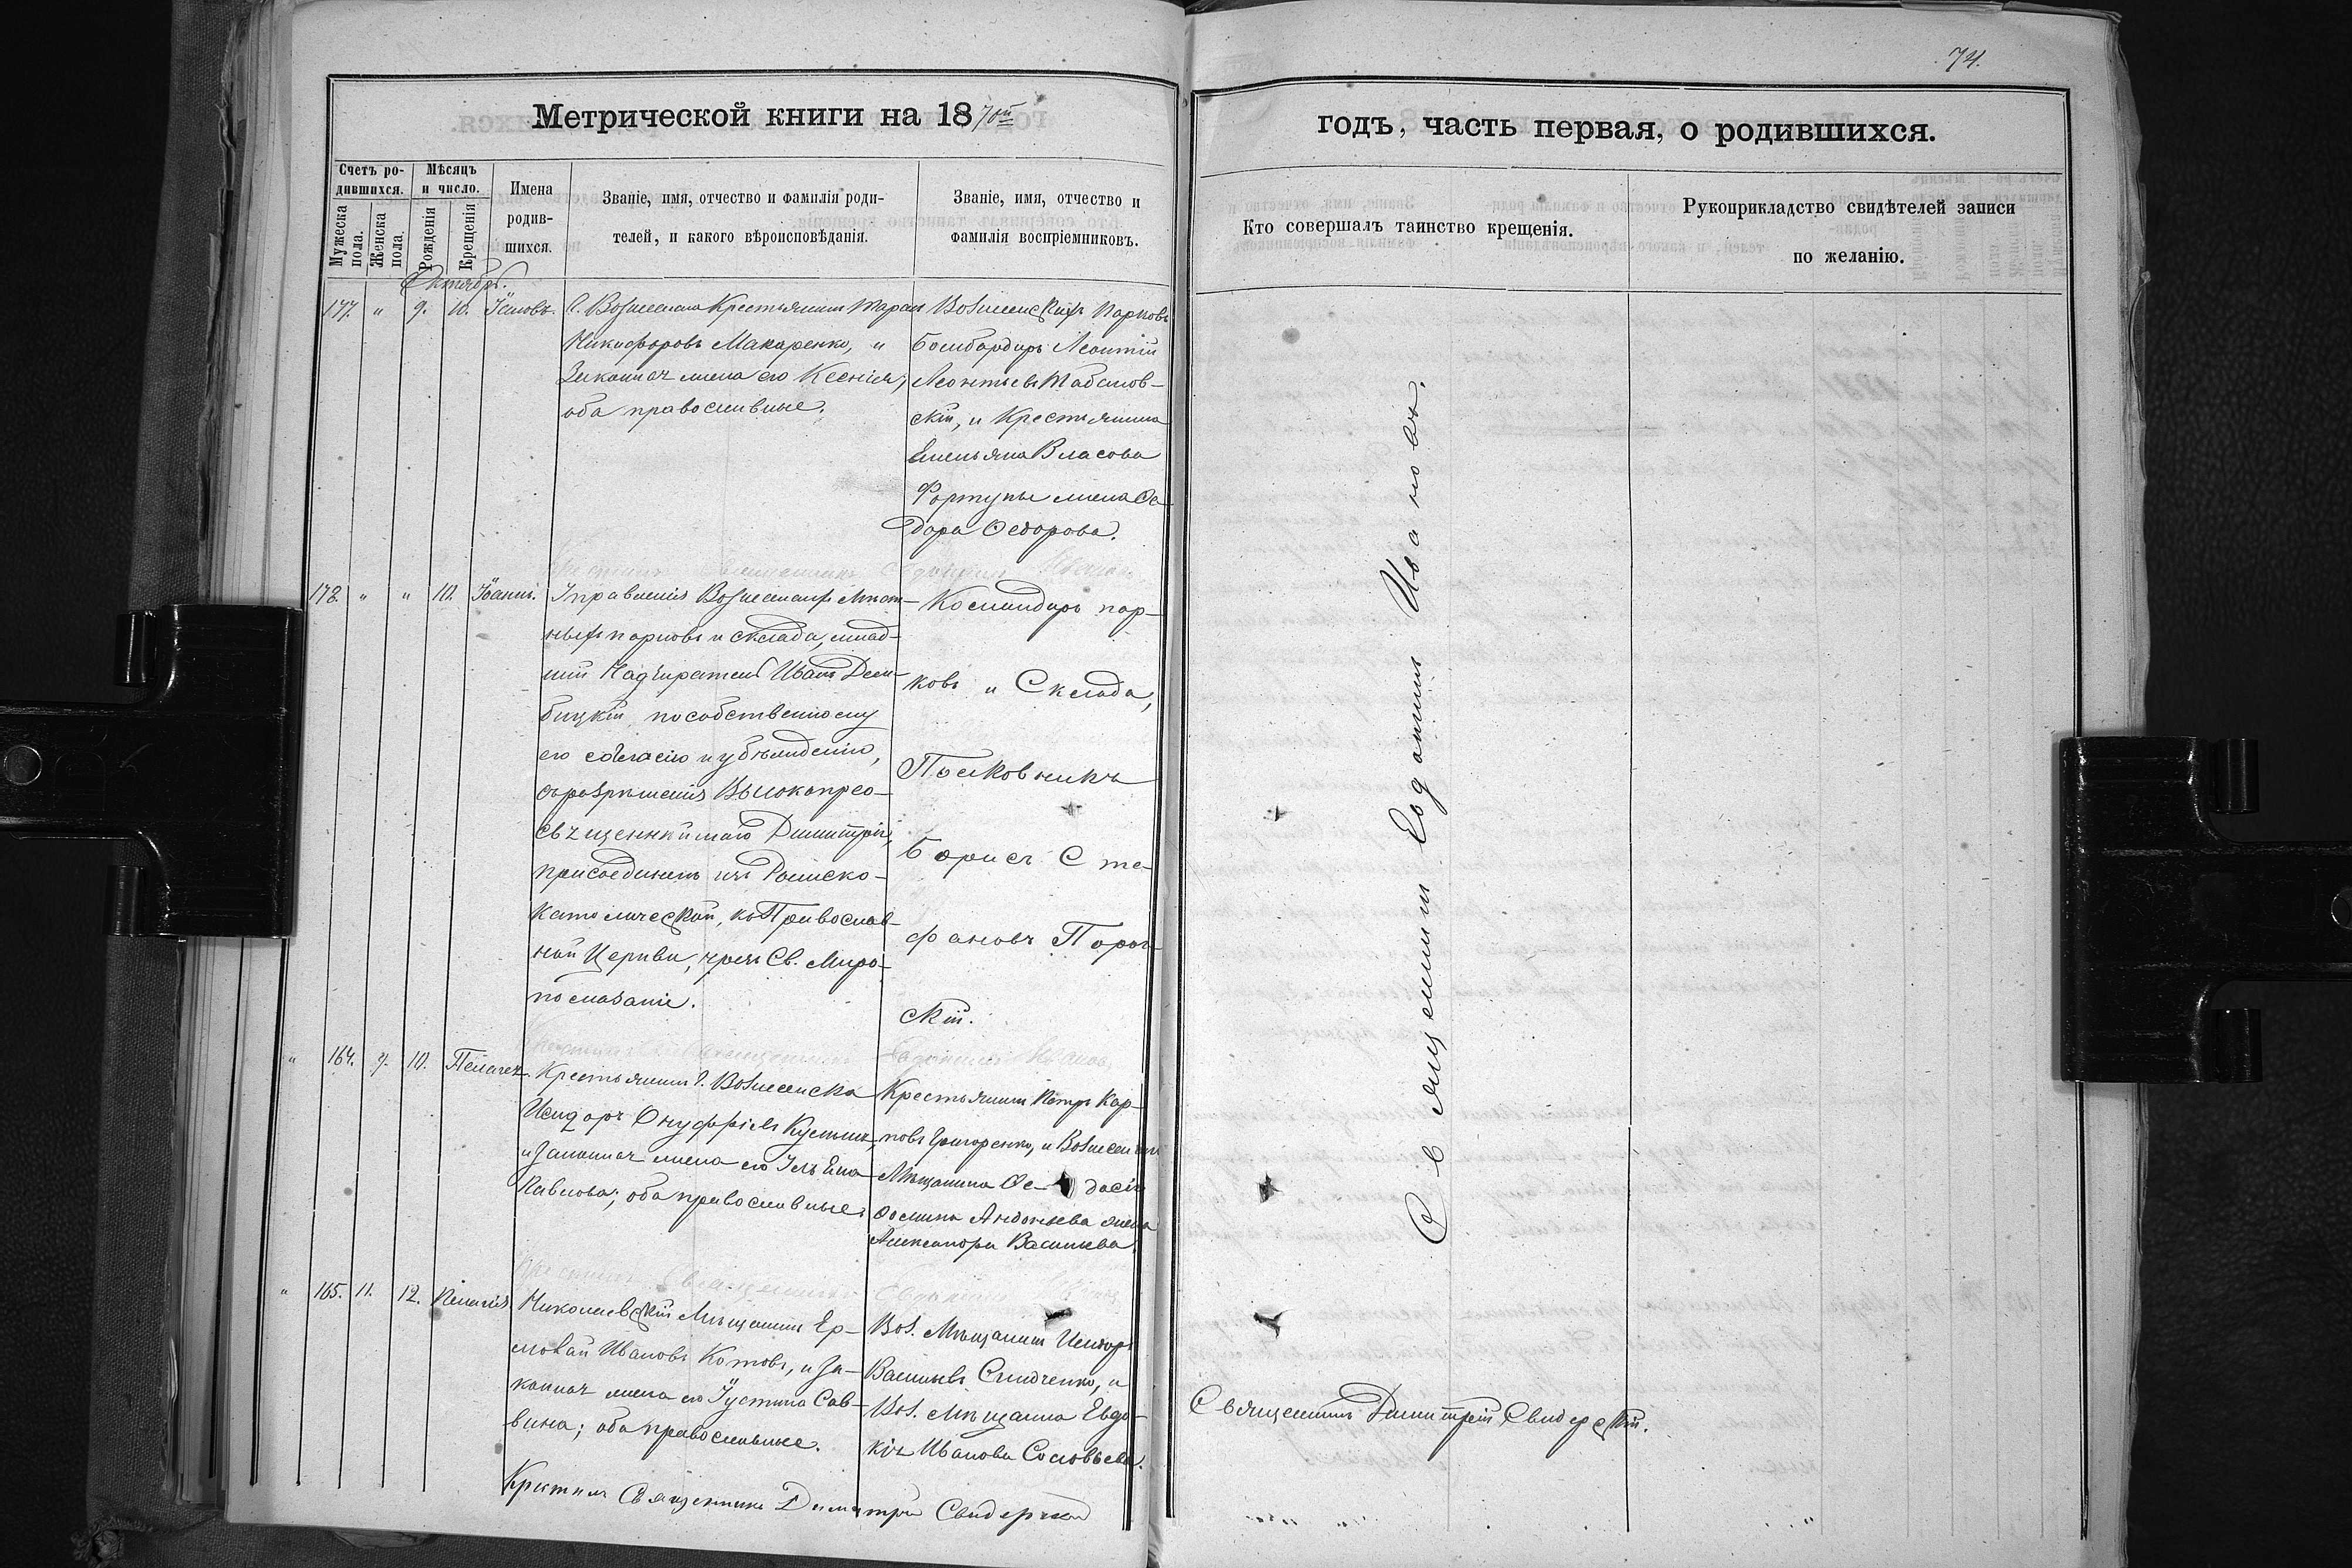 74.
Метрической книги на 1870й
годъ, часть первая, о родившихся.
Счетъ ро-
дившихся.
Мужеска пола.
Женска пола.
Мѣсяцъ
и число.
Рожденія
Крещенія
Имена
родив-
шихся.
Званіе, имя, отчество и фамилія роди-
телей, и какого вѣроисповѣданія.
Званіе, имя, отчество и
фамилія воспріемниковъ.
Кто совершалъ таинство крещенія.
Рукоприкладство свидѣтелей записи
по желанію.
Октябрь.
177. " 9. 10. Іаковъ.
Г. Вознесенска Крестьянинъ Тарасъ
Никифоровъ Макаренко, и
Законная жена его Ксенія,
оба православные.
Вознесенскихъ Парковъ
Бомбардиръ Леонтій
Леонтьевъ
скій, и Крестьянина
Емельяна Власова
Фортуны жена Ѳе-
дора Ѳедорова.
178. " " 10. Іоаннъ.
Управленія Вознесенскихъ
ныхъ парковъ и склада, млад-
шій Надзиратель Иванъ Дем-
бицкій по собственному
его согласію и убѣжденію,
съ разрѣшенія Высокопрео-
священнѣйшаго Димитрія,
присоединенъ изъ Римско-
католической, къ Православ-
ной Церкви, чрезъ Св. Миро-
помазаніе.
Командиръ пар-
ковъ и Склада,
Полковникъ
Борисъ Сте-
фановъ Порог-
скій.
" 164. 9. 10. Пелагея.
Крестьянинъ Г. Вознесенска
Исидоръ Онуфріевъ
и Законная жена его
Павлова; оба православные.
Крестьянинъ Петръ Кар-
повъ Григоренко, и
Мѣщанина Ѳе- досія
Андоньева жена
Александра Васильева.
" 165. 11. 12. Пелагія
Николаевскій Мѣщанинъ Ер-
молай Ивановъ Котовъ, и За-
конная жена его Іустина Сав-
вина; оба православные.
Воз. Мѣщанинъ Исидоръ
Васильевъ и
Воз. Мѣщанка Евдо-
кія Иванова Соловьева.
Крестилъ Священникъ Димитрій Свидерскій
Священникъ Евдокимъ Ивановъ.
Священникъ Димитрій Свидерскій.